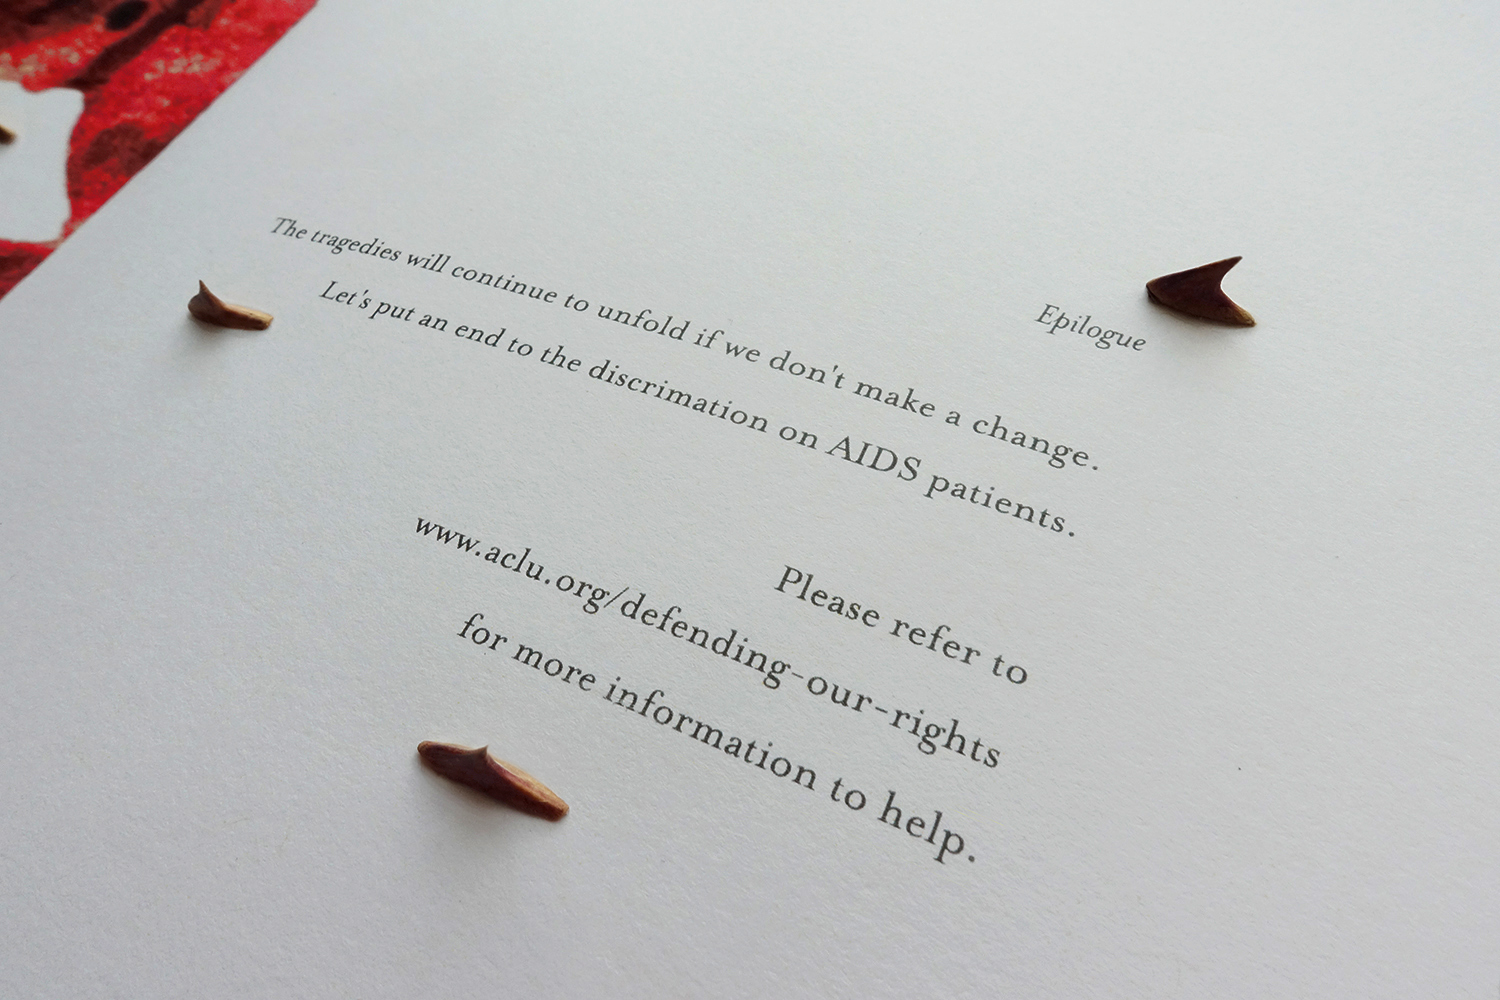 Epilogue
The tragedies will continue to unfold if we don't make a change.
Let's put an end to the discrimation on AIDS patients.
Please refer to
www.aclu.org/defending-our-rights
for more information to help.